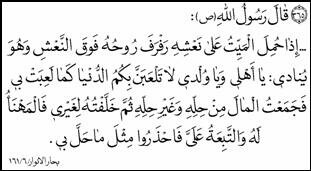 ۳۶۵ قَالَ رَسُولُ اللهِ (ص):
... إِذَا حُمِلَ الْمَيِّتُ عَلَىٰ نَعْشِهِ رَفْرَفَ رُوحُهُ فَوْقَ النَّعْشِ وَهُوَ
يُنَادِي: يَا أَهْلِي وَيَا وُلْدِي لَا تَلْعَبَنَّ بِكُمُ الدُّنْيَا كَمَا لَعِبَتْ بِي
فَجَمَعْتُ الْمَالَ مِنْ حِلِّهِ وَغَيْرِ حِلِّهِ ثُمَّ خَلَّفْتُهُ لِغَيْرِي فَالْمَهْنَأُ
لَهُ وَالتَّبِعَةُ عَلَيَّ فَاحْذَرُوا مِثْلَ مَا حَلَّ بِي .
بحار الانوار: ۱۶۱/۶